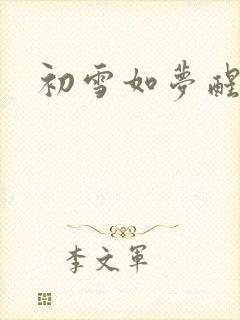 初雪如夢醒
李文軍